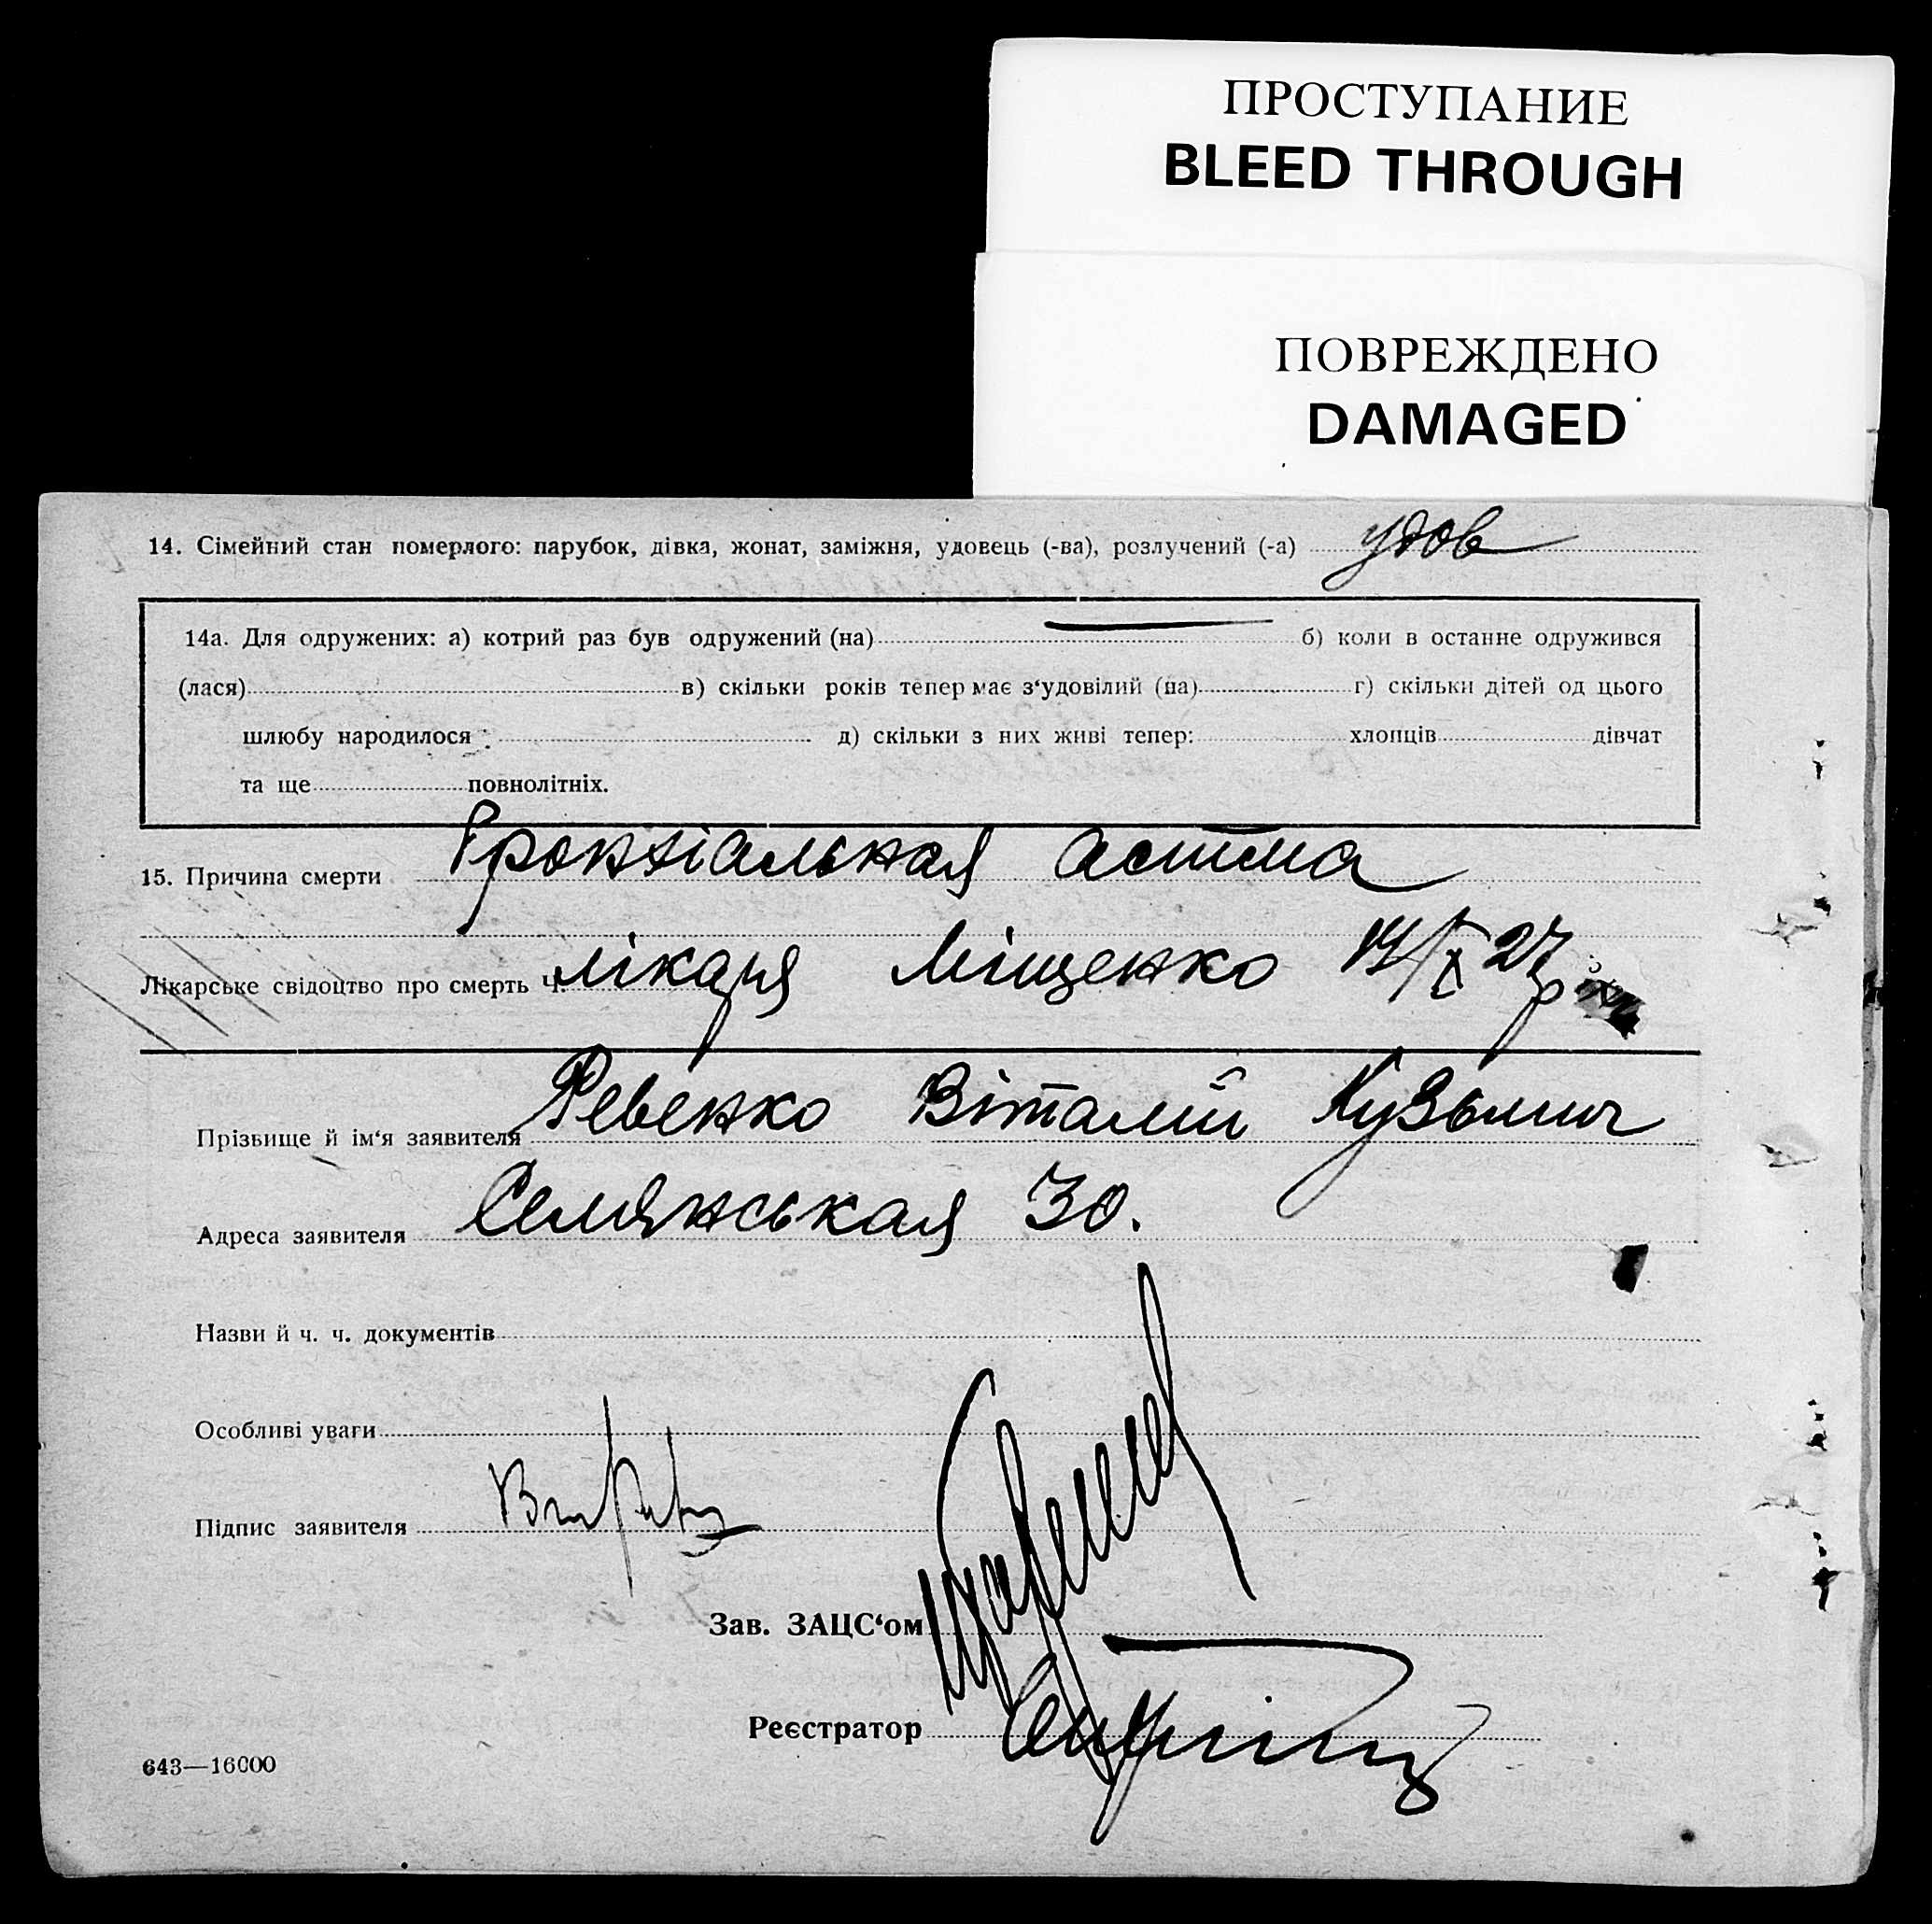 ПРОСТУПАНИЕ
BLEED THROUGH
ПОВРЕЖДЕНО
DAMAGED
14. Сімейний стан померлого: парубок, дівка, жонат, заміжня, удовець (-ва), розлучений (-а) удов
14а. Для одружених: а) котрий раз був одружений (на) б) коли в останнє одружився
(лася) в) скільки років тепер має з‘удовілий (на) г) скільки дітей од цього
шлюбу народилося : д) скільки з них живі тепер: хлопців дівчат
та ще повнолітніх.
15. Причина смерти Бронхіальная астма
Лікарське свідоцтво про смерть Ч. лікаря Міщенко 14/X 27р
Прізвище й ім‘я заявителя Ревенко Віталий Кузьмич
Адреса заявителя Селянськая 30.
Назви й ч. ч. документів
Особливі уваги
Підпис заявителя
Зав. ЗАЦС‘ом
Реєстратор
643—16000